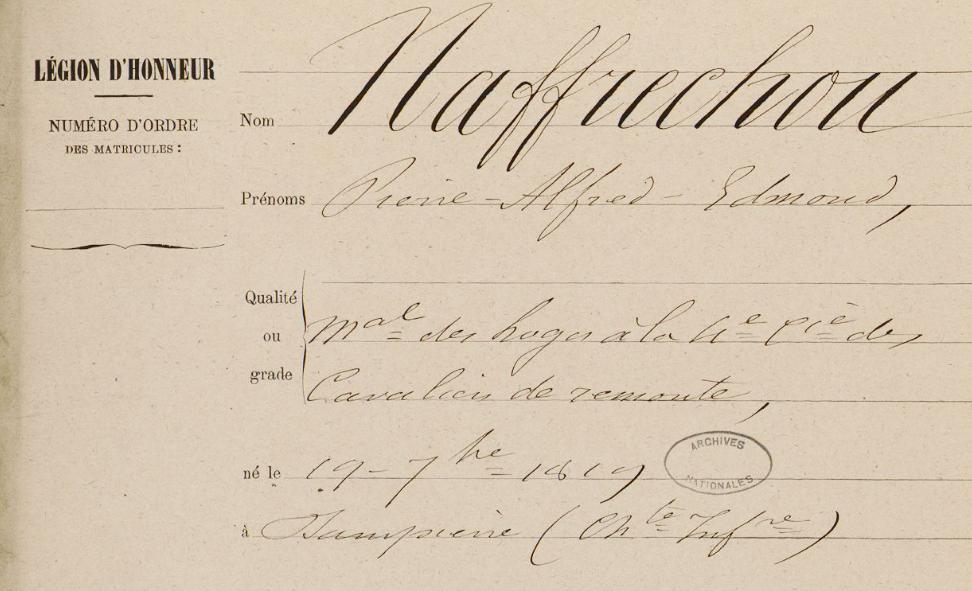 LÉGION D'HONNEUR
NUMÉRO D'ORDRE
DES MATRICULES :
Nom Naffrechou
Prénoms Pierre - Alfred - Edmond,
Qualité
ou
grade
Mal des logis à la 4e Cie des
Cavaliers de remonte,
né le 19 - 7bre 1819
ARCHIVES
NATIONALES
à Dampierre (Chte Infre)